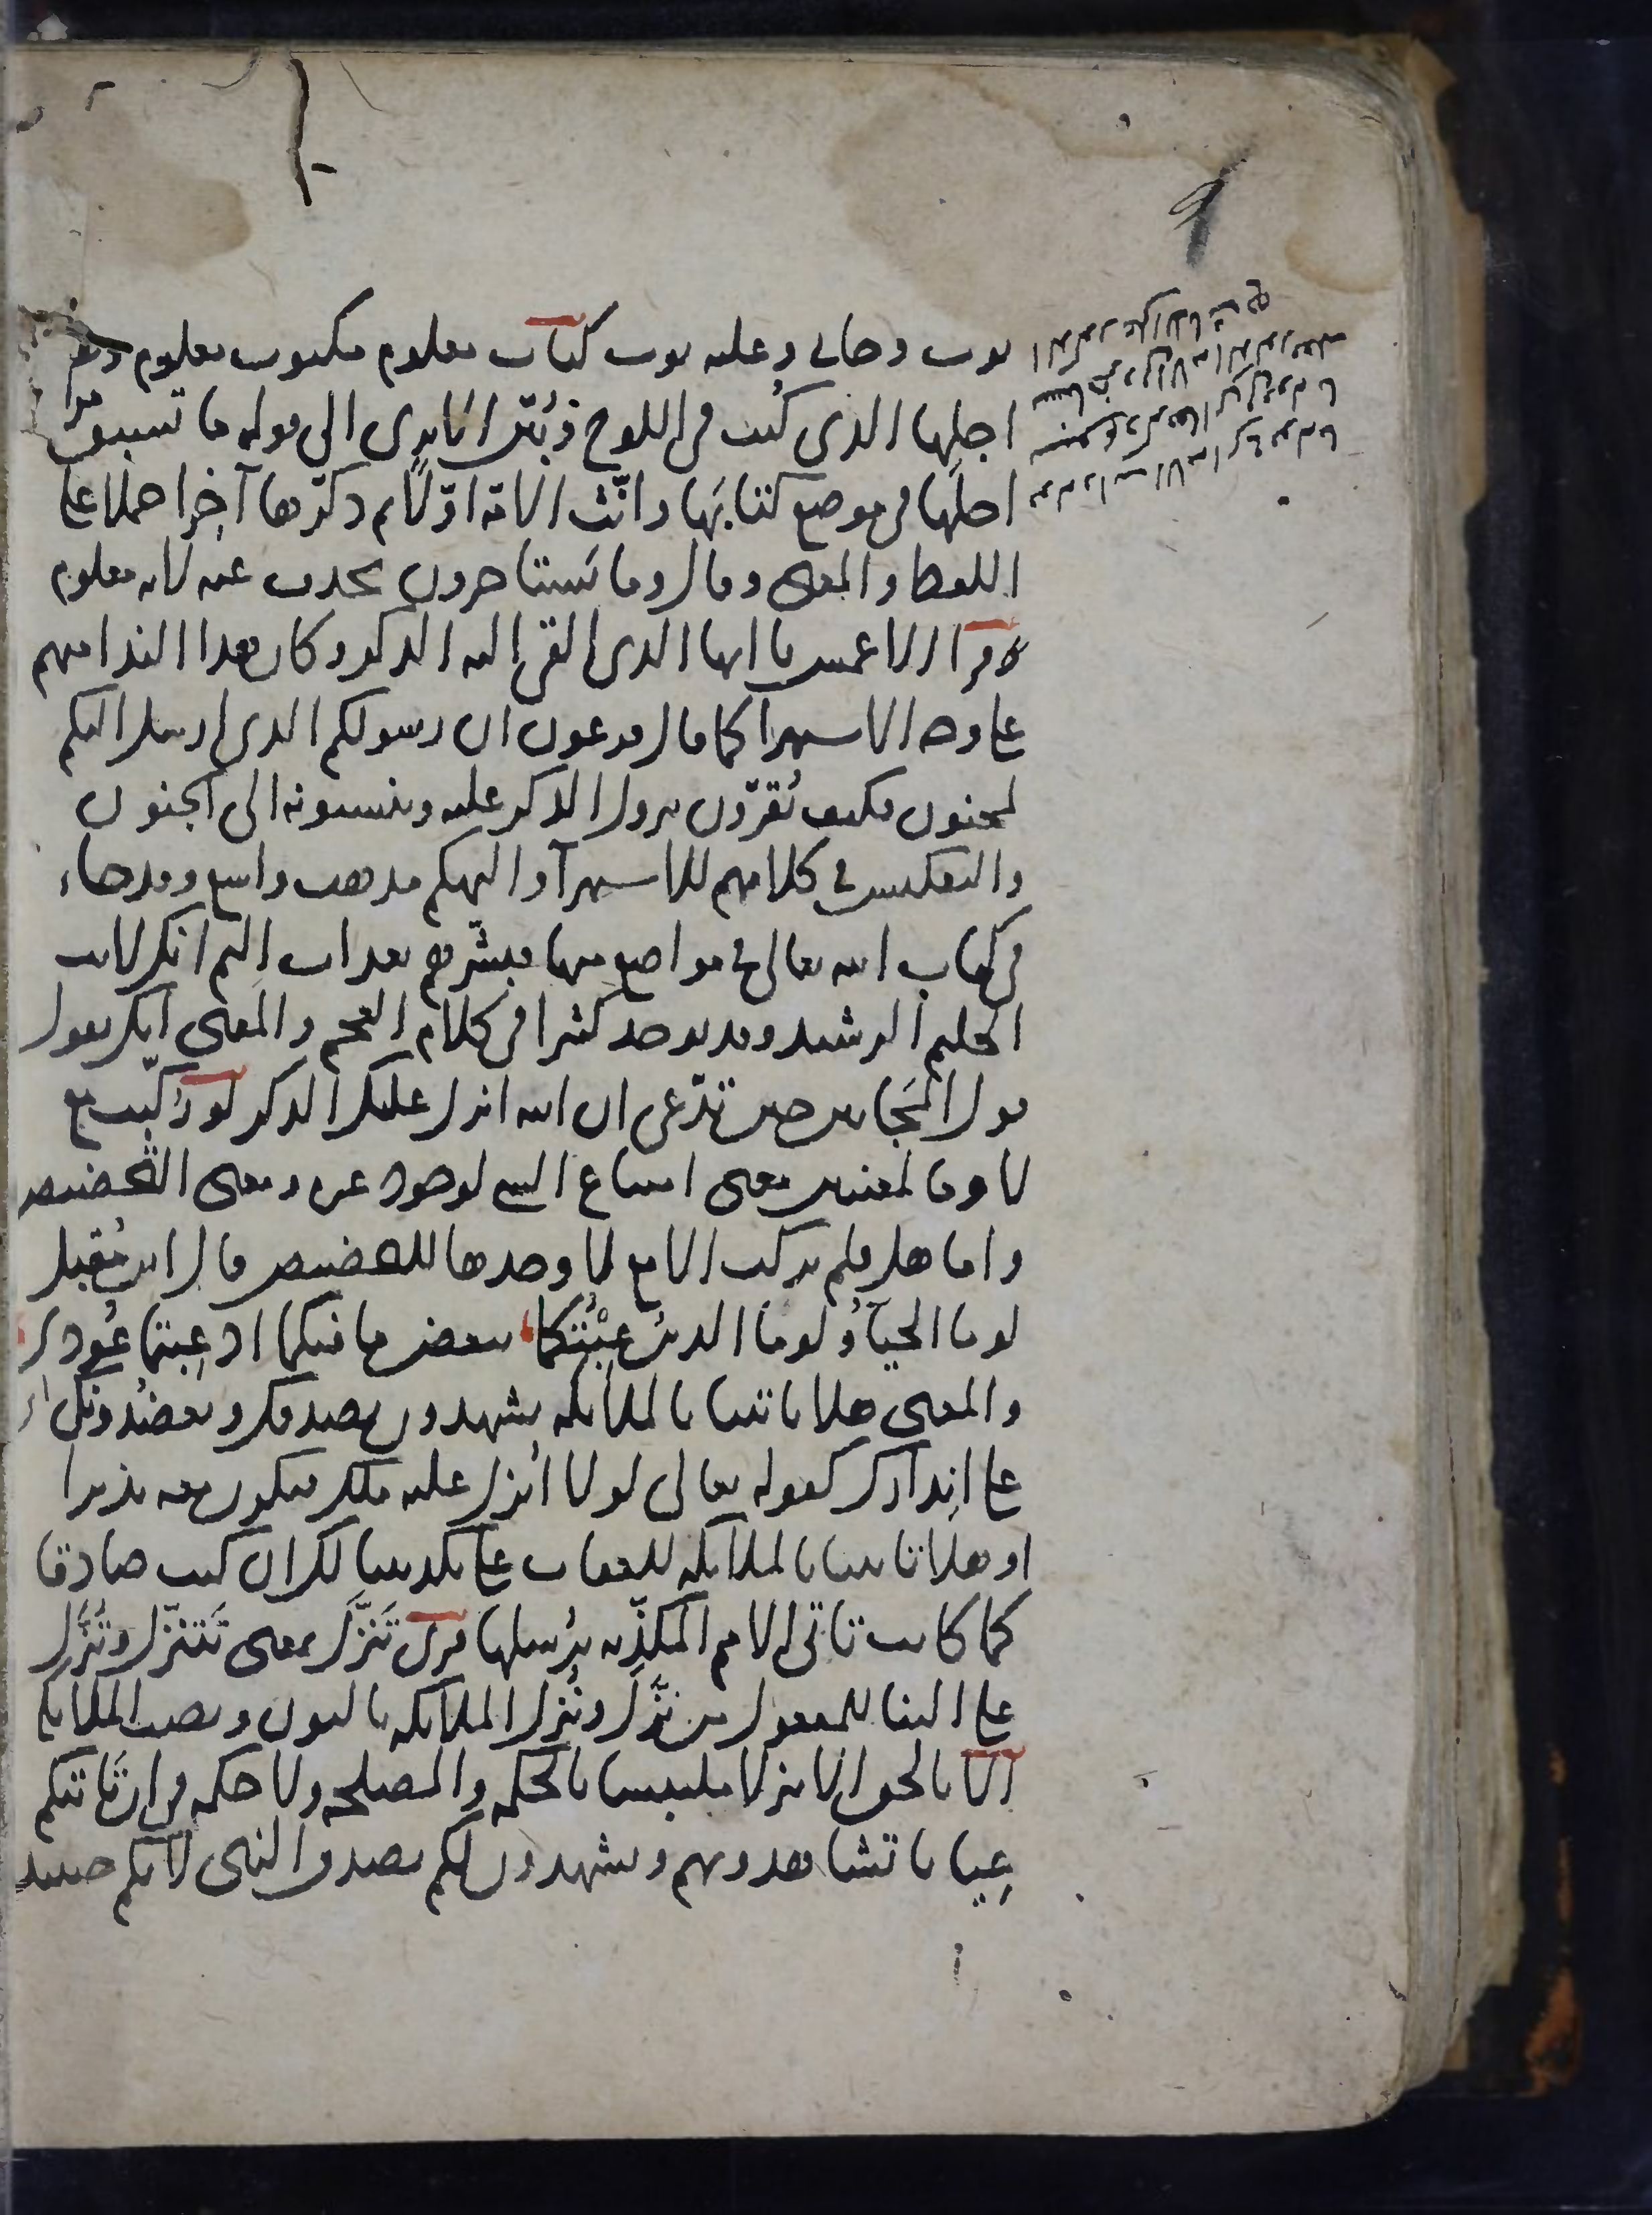 ثوب وجانى وعليه ثوب كتاب معلوم مكتوب معلوم وهو
اجلها الذى كُتب فى اللوح وبُيّن الا ترى الى قوله ما تسبق
اجلها فى موضع كتابها وانّث الامة اوّلًا ثم ذكّرها آخرا حملا على
اللفظ والمعنى وقال وما يستاخرون بحذف عنه لانه معلوم
قرا الاعمش يا ايها الذى القى اليه الذكر وكان هذا الندا منهم
على وجه الاستهزا كما قال فرعون ان رسولكم الذى ارسل اليكم
لمجنون فكيف تُقرّون بنزول الذكر عليه وينسبونه الى الجنون
والتعكيس فى كلامهم للاستهزآ والتهكم مذهب واسع وقد جاء
فى كتاب الله تعالى فى مواضع منها فبشّرهم بعذاب اليم انك لانت
الحليم الرشيد وقد يوجد كثيرا فى كلام العجم والمعنى انك لتقول
قول المجانين حين تدّعى ان الله انزل عليك الذكر لو رُكّبت مع
لا وما لمعنيين معنى امتناع الشى لوجود غيره ومعنى التحضيض
واما هل فلم تركب الا مع لا وحدها للتحضيض قال ابن مُقبل
لو ما الحيآءُ ولو ما الدين عِبْتُكما ببعض ما فيكما اذ عِبتما عَوَرى
والمعنى هلا تاتينا بالملائكه يشهدون بصدقك ويعضدونك
على انذآرك كقوله تعالى لولا انزل عليه ملك فيكون معه نذيرا
او هلا تاتينا بالملائكه للعقاب على تكذيبنا لك ان كنت صادقا
كما كانت تاتى الامم المكذّبه برُسلها قرى تَنزَّل بمعنى تتنزّل وتُنزَّل
على البنا للمفعول من نزّل ونُنزّل الملائكه بالنون ونصب الملائكه
الا بالحق الا تنزلا ملتبسا بالحكمه والمصلحه ولا حكمه فى ان تاتيكم
عِيانا تشاهدونهم ويشهدون لكم بصدق النبى لانكم حينئذ